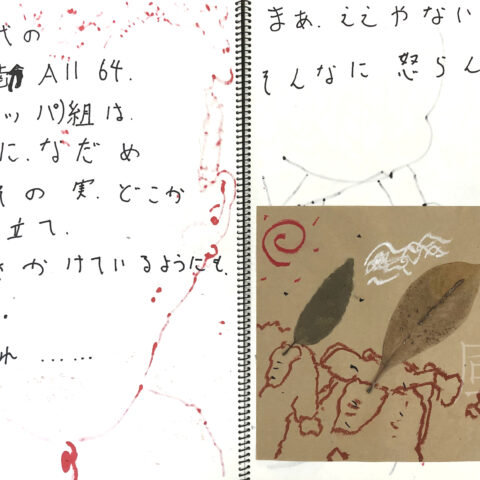 代の
All 64.
ッパ)組は.
に.なだめ
その実.どこか
立て.
きかけているようにも.
れ……
まあ.ええやない
そんなに怒らん
風